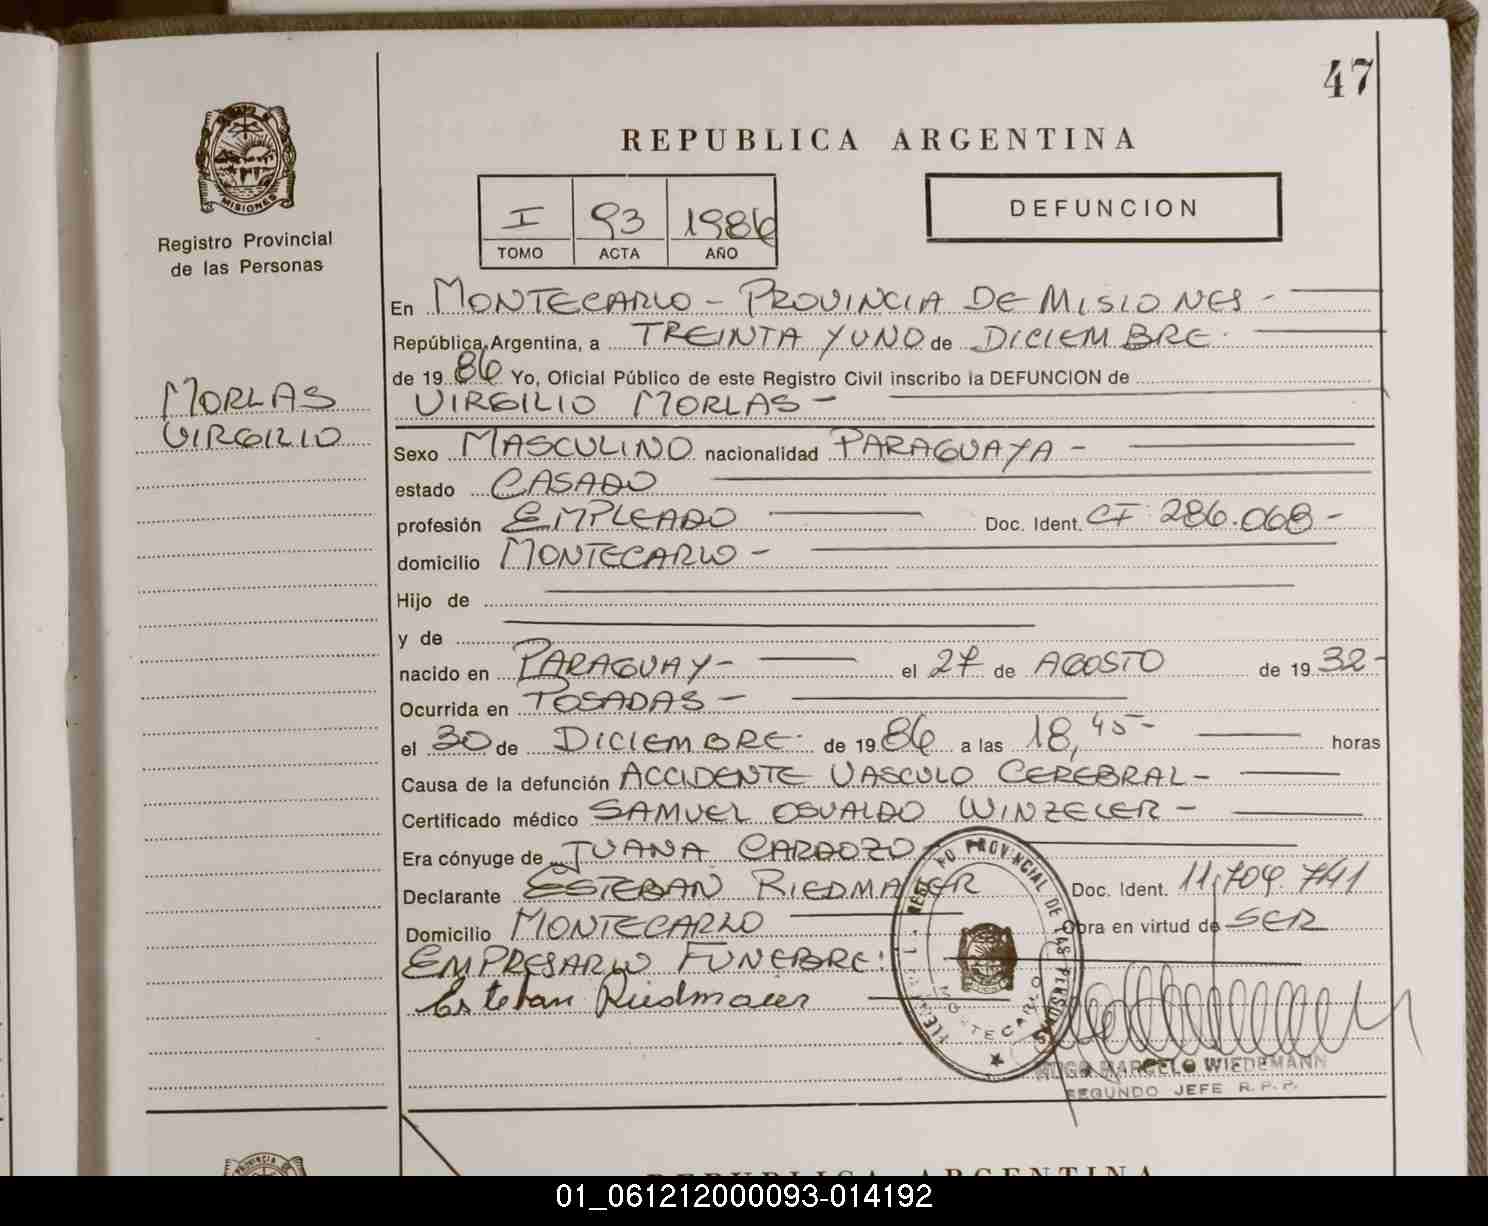 47
REPUBLICA ARGENTINA
MISIONES
Registro Provincial
de las Personas
I 93 1986
TOMO ACTA AÑO
DEFUNCION
MORLAS
VIRGILIO
En MONTECARLO - PROVINCIA DE MISIONES -
República Argentina, a TREINTA Y UNO de DICIEMBRE
de 19 86 Yo, Oficial Público de este Registro Civil inscribo la DEFUNCION de
VIRGILIO MORLAS -
Sexo MASCULINO nacionalidad PARAGUAYA -
estado CASADO
profesión EMPLEADO Doc. Ident. CI 286.068 -
domicilio MONTECARLO -
Hijo de
y de
nacido en PARAGUAY - el 27 de AGOSTO de 19 32 -
Ocurrida en POSADAS -
el 30 de DICIEMBRE de 19 86 a las 18,45 - horas
Causa de la defunción ACCIDENTE VASCULO CEREBRAL -
Certificado médico SAMUEL OSVALDO WINZELER -
Era cónyuge de JUANA CARDOZO
Declarante ESTEBAN RIEDMAIER Doc. Ident. 11.709.741
Domicilio MONTECARLO Obra en virtud de SER
EMPRESARIO FUNEBRE.
Esteban Riedmaier
PROVINCIAL DE LAS PERSONAS
MONTECARLO
HUGO MARCELO WIEDEMANN
SEGUNDO JEFE R.P.P.
PROVINCIA DE
REPUBLICA ARGENTINA
01_061212000093-014192